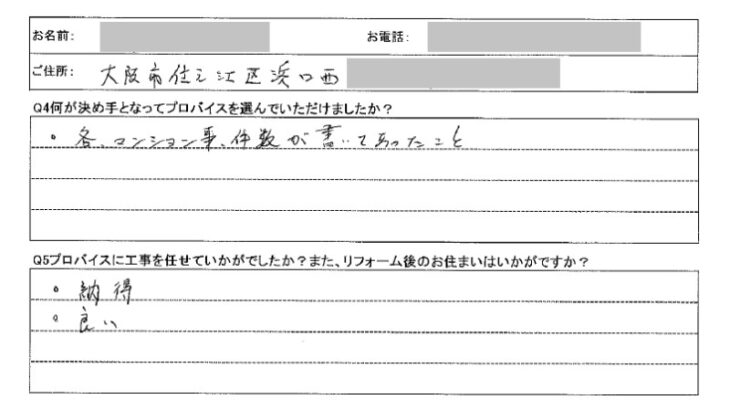 お名前: お電話:
ご住所: 大阪市住之江区浜口西
Q4何が決め手となってプロバイスを選んでいただけましたか?
・各、マンション事、件数が書いてあったこと
Q5プロバイスに工事を任せていかがでしたか?また、リフォーム後のお住まいはいかがですか?
・納得
・良い